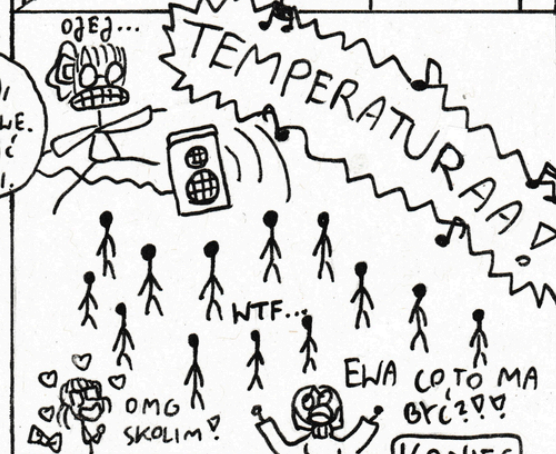 OJEJ...
TEMPERATURAA!
WE.
WTF...
OMG
SKOLIM!
EWA CO TO MA
BYĆ?!!
KONIEC